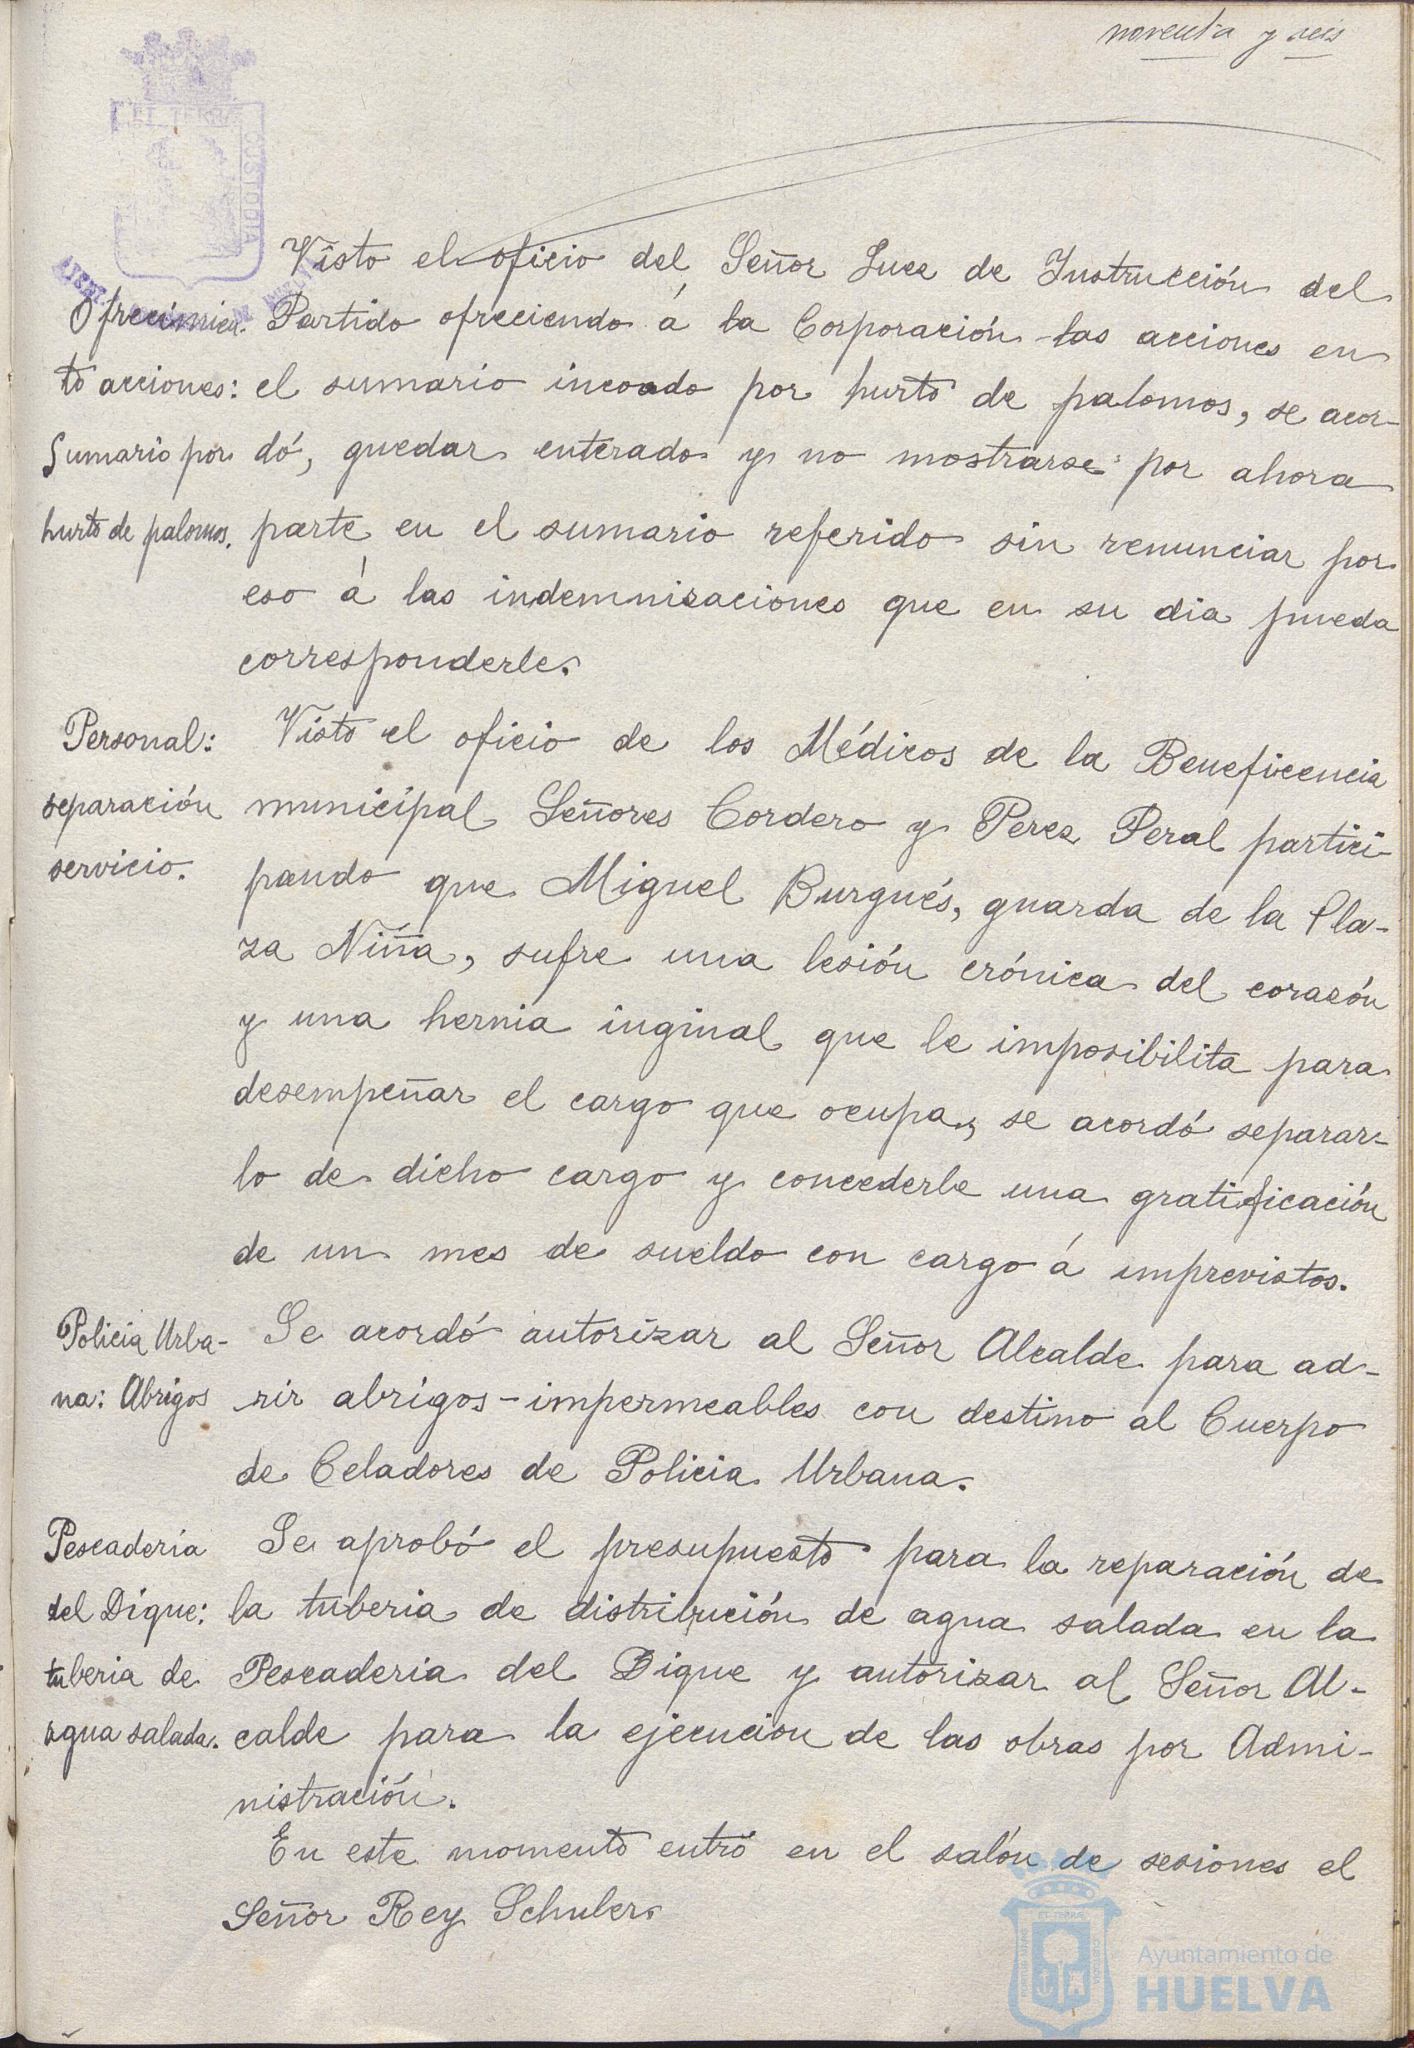 noventa y seis
EL TERRÆ
CUSTODIA
Visto el oficio del Señor Juez de Instrucción del
Ofrecimien-
Partido ofreciendo á la Corporación las acciones en
to acciones:
el sumario incoado por hurto de palomos, se acor-
Sumario por
dó, quedar enterado y no mostrarse por ahora
hurto de palomos.
parte en el sumario referido sin renunciar por
eso á las indemnizaciones que en su dia pueda
corresponderle.
Personal:
Visto el oficio de los Médicos de la Beneficencia
separación
municipal Señores Cordero y Perez Peral partici-
servicio.
pando que Miguel Burgués, guarda de la Pla-
za Niña, sufre una lesión crónica del corazón
y una hernia inginal que le imposibilita para
desempeñar el cargo que ocupa, se acordó separar-
lo de dicho cargo y concederle una gratificación
de un mes de sueldo con cargo á imprevistos.
Policia Urba-
Se acordó autorizar al Señor Alcalde para ad-
na: Abrigos
rir abrigos-impermeables con destino al Cuerpo
de Celadores de Policia Urbana.
Pescadería
Se aprobó el presupuesto para la reparación de
del Dique:
la tuberia de distribución de agua salada en la
tuberia de
Pescaderia del Dique y autorizar al Señor Al-
agua salada.
calde para la ejecucion de las obras por Admi-
nistración.
En este momento entró en el salón de sesiones el
Señor Rey Schuler.
Ayuntamiento de
HUELVA